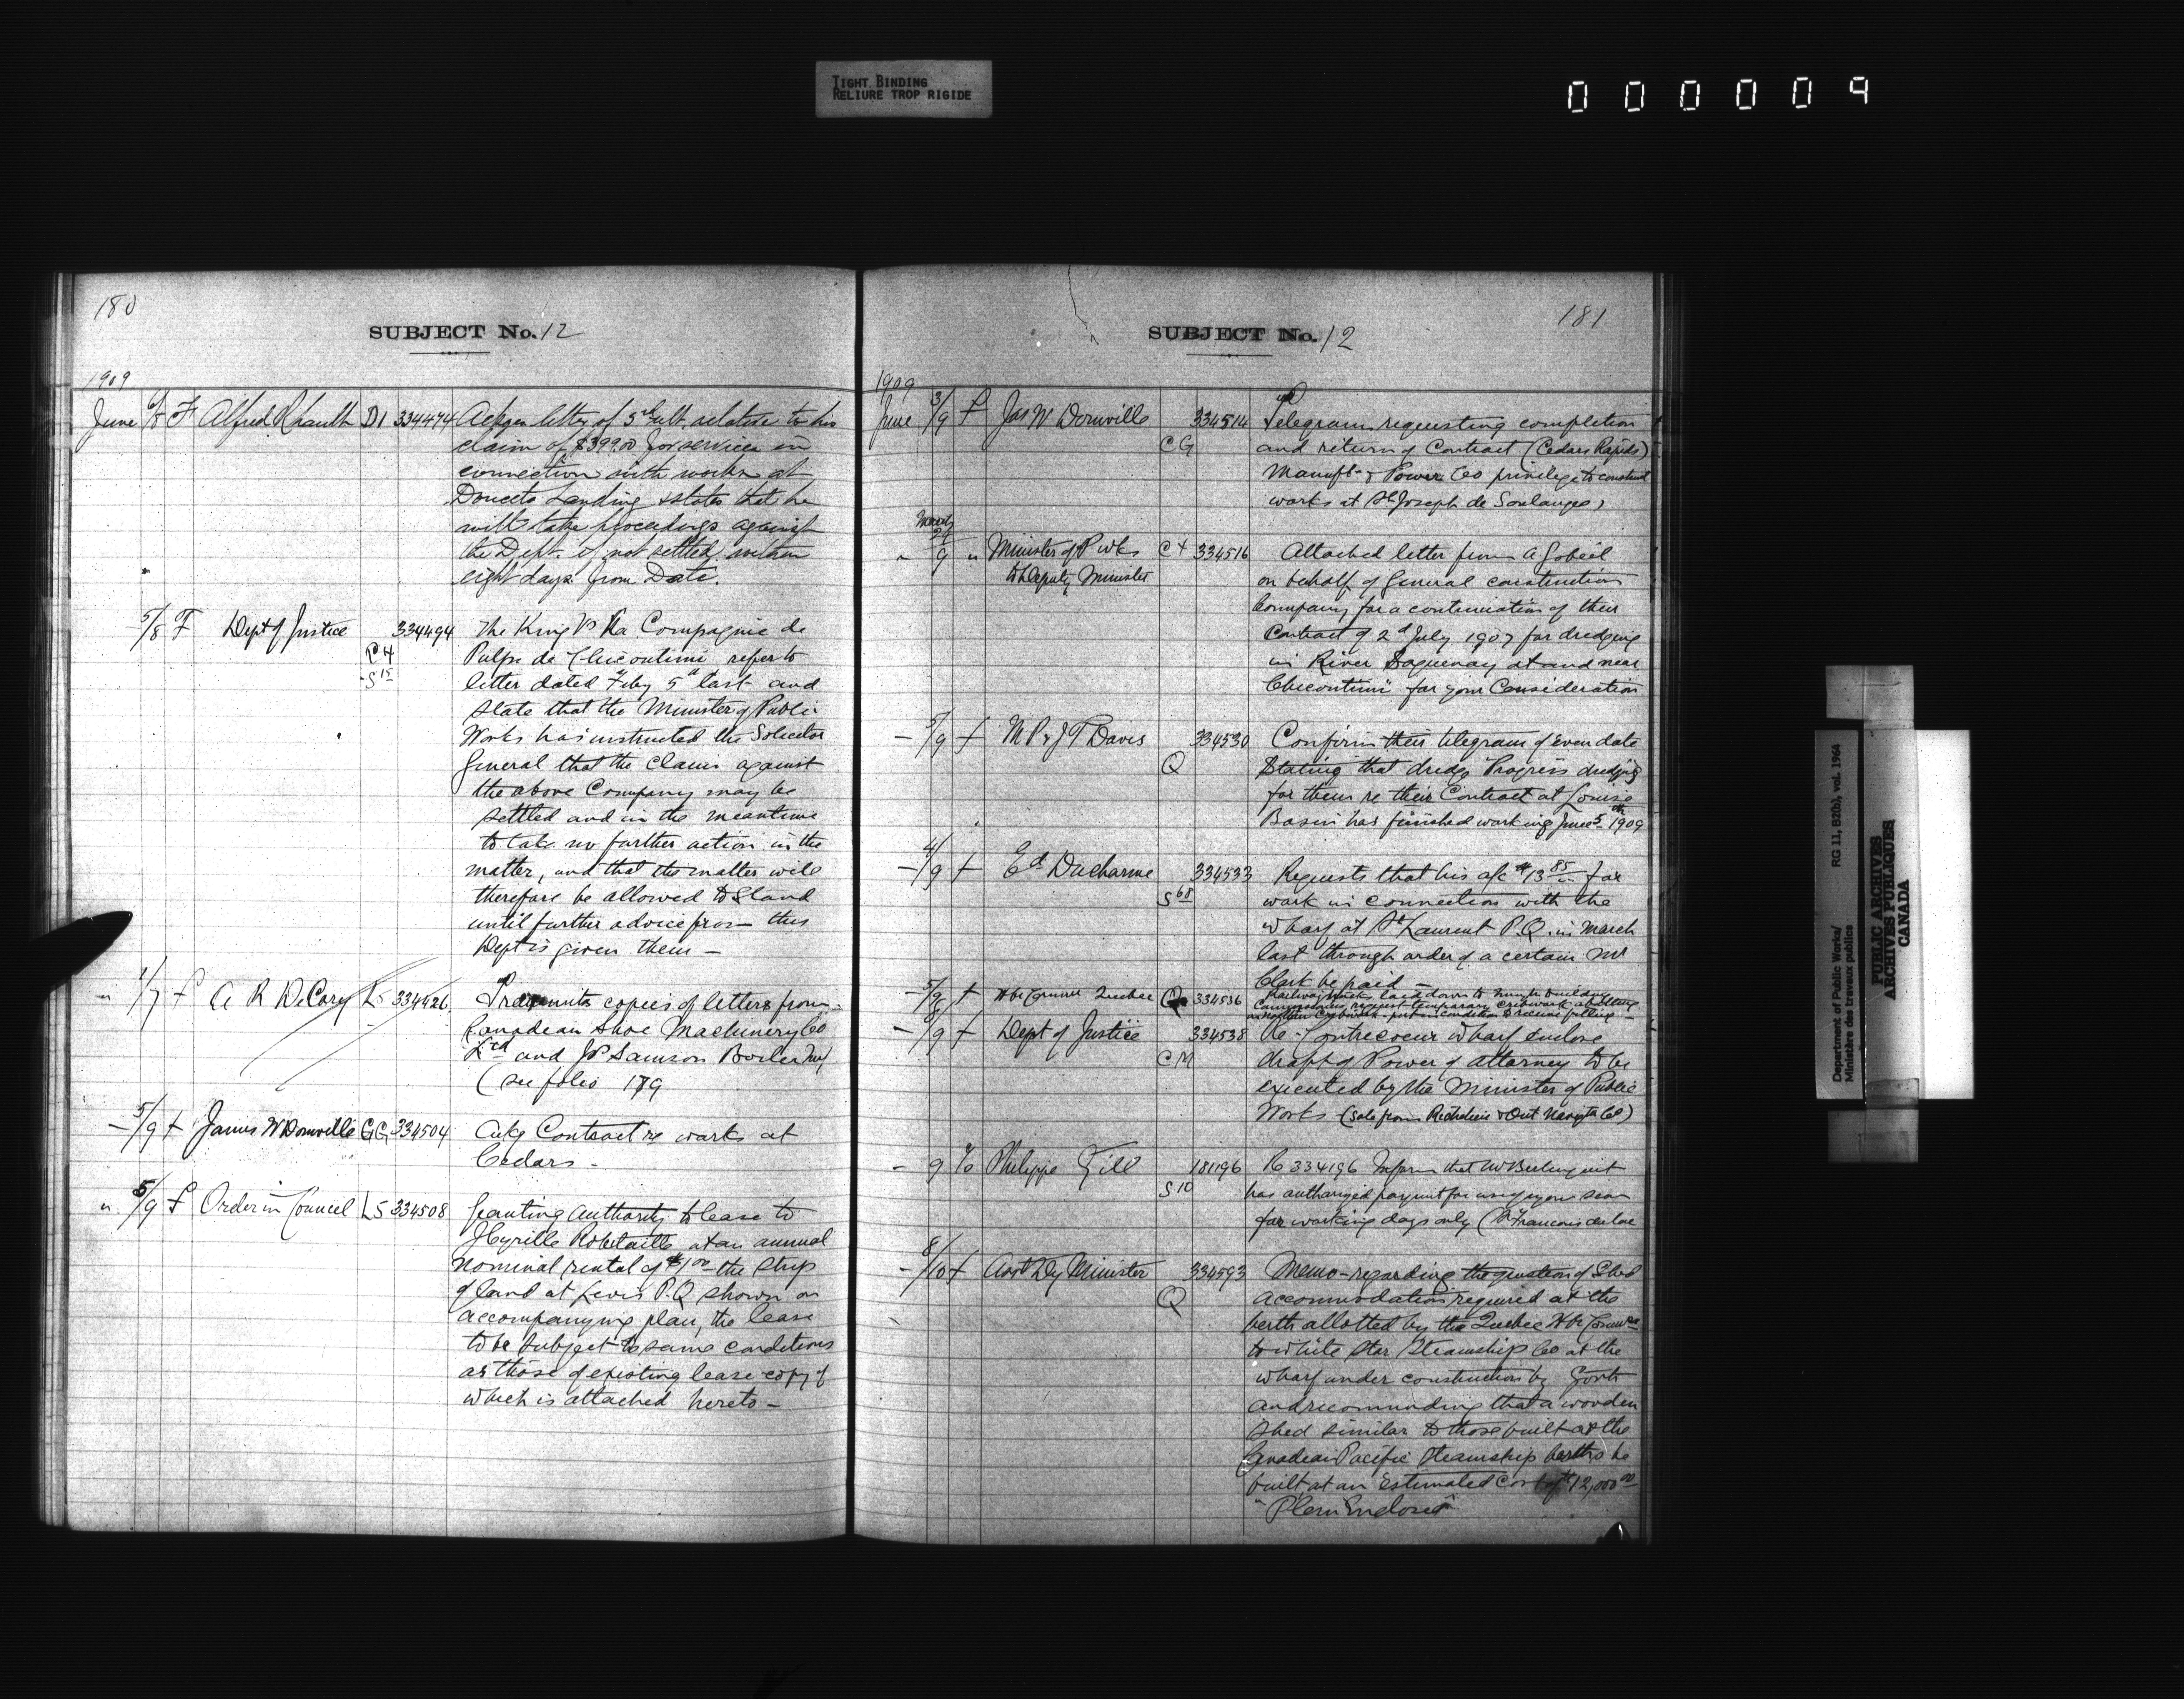 TIGHT BINDING
RELIURE TROP RIGIDE
000009
180
SUBJECT No. 12
1909
June 6/8 F Alfred D1 334474 letter of 3rd ult. relative to his
claim of $399.00 for services in
connection with works at
Doucets Landing & states that he
will take proceedings against
the Dept. if not settled within
eight days from Date.
5/8 F Dept of Justice 334494 The King Vs La Compagnie de
C4 Pulpe de Chicoutimi refer to
S15 letter dated Feby 5th last and
state that the Minister of Public
Works has instructed the Solicitor
General that the claim against
the above Company may be
settled and in the meantime
to take no further action in the
matter, and that the matter will
therefore be allowed to stand
until further advice from this
Dept is given them —
" 1/7 f A R DeCary L5 334426 Transmits copies of letters from
Canadian Shoe Machinery Co
Ltd and JP Samson Boiler
(see folio 179
— 5/9 f James W Domville CG 334504 Ackg Contract re works at
Cedars -
" 5/9 f Order in Council L5 334508 Granting Authority to lease to
J Cyrille Robitaille at an annual
nominal rental of $1.00 - the strip
of land at Levis P.Q. shown on
accompanying plan, the lease
to be subject to same conditions
as those of existing lease copy of
which is attached hereto —
181
SUBJECT No. 12
1909
June 3/9 f Jas W Domville 334514 Telegram requesting completion
CG and return of Contract (Cedars Rapids)
Manuft. & Power Co privilege to construct
works at St Joseph de Soulanges)
" 24/9 " Minister of P wks C4 334516 Attached letter from A Gobeil
to Deputy Minister on behalf of General construction
Company for a continuation of their
Contract of 2d July 1907 for dredging
in River Saguenay at and near
Chicoutimi for your Consideration
— 5/9 f M P & J T Davis 334530 Confirm their telegram of even date
Q Stating that dredge Progress dredging
for them re their Contract at Louise
Basin has finished working June 5th 1909
— 4/9 f Ed Ducharme 334533 Requests that his a/c $13 85 for
S68 work in connection with the
wharf at St Laurent P.Q. in March
last through order of a certain Mr
Clark be paid —
— 5/9 f Hbr Commrs Quebec Q 334536 Railway tracks laid down to
request temporary cribwork
put in condition to receive filling —
— 8/9 f Dept of Justice 334538 Re - Contrecoeur wharf enclose
CM draft of Power of Attorney to be
executed by the Minister of Public
Works (sale from Richelieu & Ont Navigtn Co)
— 9 % Philippe Gill 181196 Re 334196 Inform that
S10 has authorized payment for
for working days only (St Francois du Lac
— 8/10 f Asst Dy Minister 334593 Memo - regarding the question of Shed
Q accommodation required at the
berth allotted by the Quebec Hbr Commrs
to White Star Steamship Co at the
wharf under construction by Govt
and recommending that a wooden
shed similar to those built at the
Canadian Pacific Steamship berths be
built at an estimated Cost of $12,000.00
"Plan Enclosed"
Department of Public Works/
Ministère des travaux publics
RG 11, B2(b), vol. 1964
PUBLIC ARCHIVES
ARCHIVES PUBLIQUES
CANADA